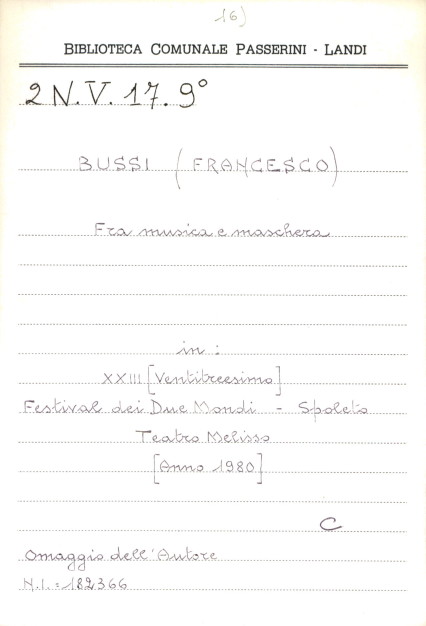 16)
BIBLIOTECA COMUNALE PASSERINI - LANDI
2 N.V. 17. 9°
BUSSI (FRANCESCO)
Fra musica e maschera
in:
XXIII [Ventitreesimo]
Festival dei Due Mondi - Spoleto
Teatro Melisso
[Anno 1980]
C
Omaggio dell'Autore
N.I. = 182366